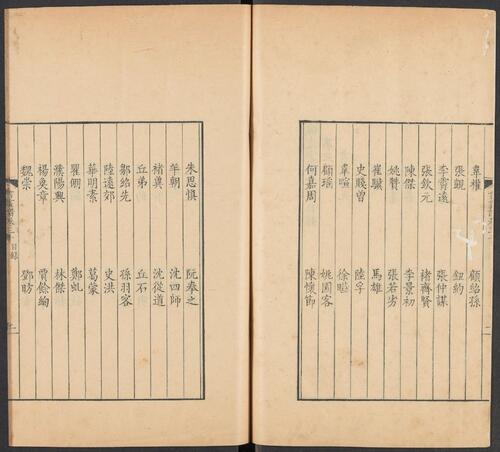 張覬 鈕約
李霄遠 張仲謀
張欽元 褚齊賢
陳傑 李景初
姚贊 張若芳
崔驥 馬雄
史賤曾 陸孚
韋暄
顧瑤 姚閑客
何嘉周 陳懷節
朱思慎 阮奉之
年朝 沈四師
褚奠 沈從道
丘弟 丘石
鄒紹先 孫羽客
陸遠郊 史洪
華明素 葛蒙
鄭虬
濮陽興 林傑
楊奐章 賈餘絢
魏棠 鄧昉
目錄